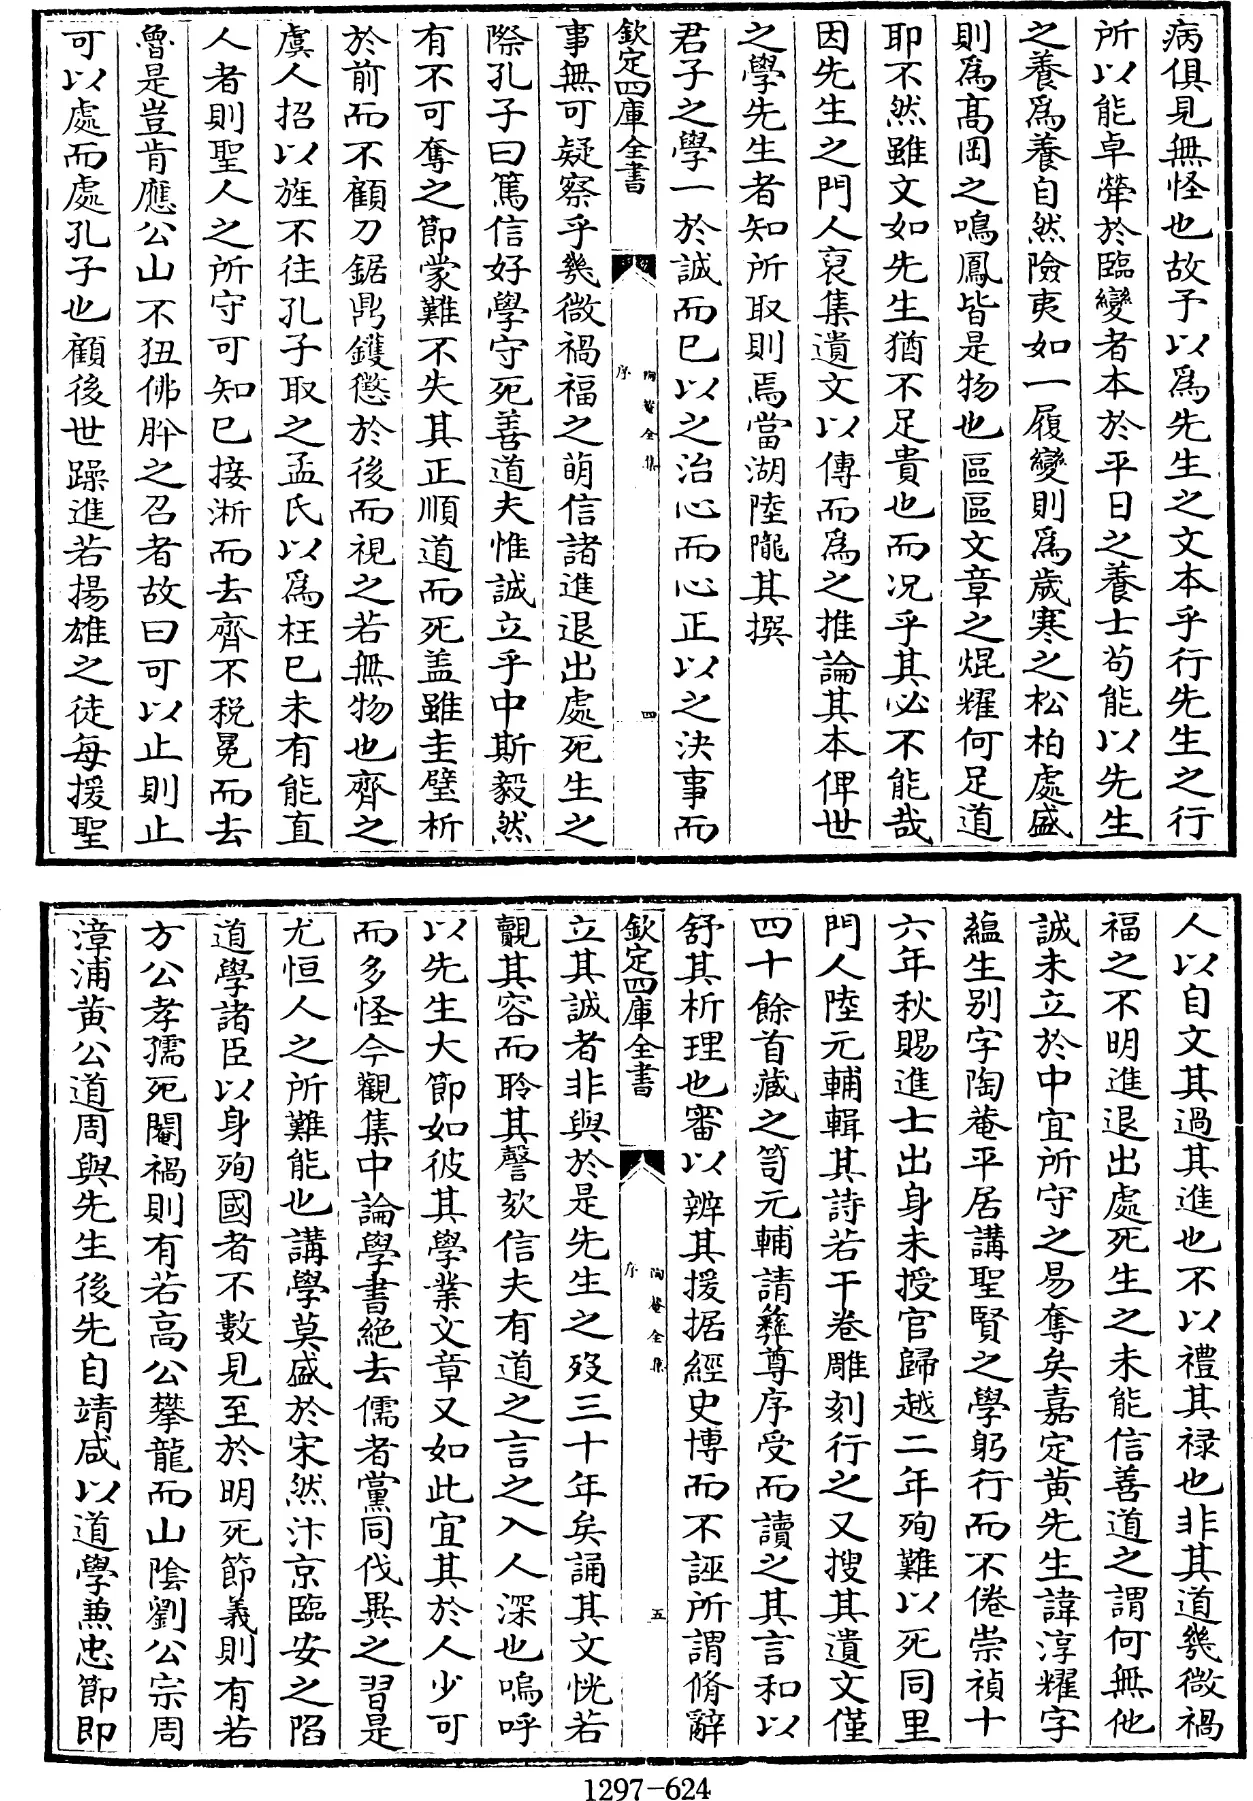 病俱見無怪也故予以為先生之文本乎行先生之行
所以能卓犖於臨變者本於平日之養士苟能以先生
之養為養自然險夷如一履變則為歲寒之松柏處盛
則為髙岡之鳴鳳皆是物也區區文章之焜耀何足道
耶不然雖文如先生猶不足貴也而况乎其必不能哉
因先生之門人裒集遺文以傳而為之推論其本俾世
之學先生者知所取則焉當湖陸隴其撰
君子之學一於誠而已以之治心而心正以之決事而
欽定四庫全書
陶菴全集
序
四
事無可疑察乎幾微禍福之萌信諸進退出處死生之
際孔子曰篤信好學守死善道夫惟誠立乎中斯毅然
有不可奪之節蒙難不失其正順道而死盖雖圭璧析
於前而不顧刀鋸鼎鑊懲於後而視之若無物也齊之
虞人招以旌不往孔子取之孟氏以為枉已未有能直
人者則聖人之所守可知已接淅而去齊不税冕而去
魯是豈肯應公山不狃佛肸之召者故曰可以止則止
可以處而處孔子也顧後世躁進若揚雄之徒每援聖
人以自文其過其進也不以禮其禄也非其道幾微禍
福之不明進退出處死生之未能信善道之謂何無他
誠未立於中宜所守之易奪矣嘉定黄先生諱淳耀字
蘊生别字陶菴平居講聖賢之學躬行而不倦崇禎十
六年秋賜進士出身未授官歸越二年殉難以死同里
門人陸元輔輯其詩若干卷雕刻行之又搜其遺文僅
四十餘首藏之笥元輔請彝尊序受而讀之其言和以
舒其析理也審以辨其援据經史博而不誣所謂脩辭
欽定四庫全書
陶菴全集
序
五
立其誠者非與於是先生之歿三十年矣誦其文恍若
覿其容而聆其謦欬信夫有道之言之入人深也嗚呼
以先生大節如彼其學業文章又如此宜其於人少可
而多怪今觀集中論學書絶去儒者黨同伐異之習是
尤恒人之所難能也講學莫盛於宋然汴京臨安之陷
道學諸臣以身殉國者不數見至於明死節義則有若
方公孝孺死閹禍則有若高公攀龍而山隂劉公宗周
漳浦黄公道周與先生後先自靖咸以道學兼忠節即
1297-624